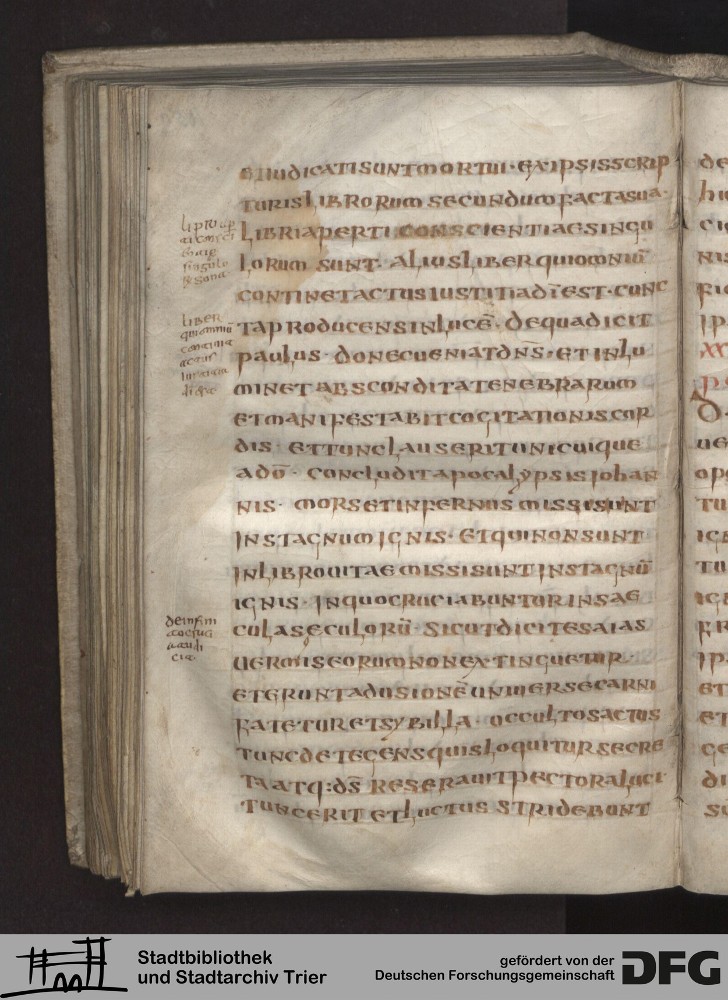 IUDICATI SUNT MORTUI · EX IPSIS SCRIP
TURIS LIBRORUM SECUNDUM FACTA SUA ·
LIBRI APERTI CONSCIENTIAE SINGU
LORUM SUNT · ALIUS LIBER QUI OMNIŪ
CONTINET ACTUS IUSTITIA DĪ EST · CUNC
TA PRODUCENS IN LUCĒ · DE QUA DICIT
PAULUS · DONEC UENIAT DN̄S · ET INLU
MINET ABSCONDITA TENEBRARUM
ET MANIFESTABIT COGITATIONIS COR
DIS · ET TUNC LAUS ERIT UNICUIQUE
A DŌ · CONCLUDIT APOCALYPSIS IOHAN
NIS · MORS ET INFERNUS MISSI SUNT
IN STAGNUM IGNIS · ET QUI NON SUNT
IN LIBRO UITAE MISSI SUNT IN STAGNŪ
IGNIS · IN QUO CRUCIABUNTUR IN SAE
CULA SECULORŪ · SICUT DICIT ESAIAS
UERMIS EORUM NON EXTINGUETUR ·
ET ERUNT AD UISIONĒ UNIUERSE CARNI
FATETUR ET SYBILLA · OCCULTOS ACTUS
TUNC DETEGENS QUIS LOQUITUR SECRE
TA ATQ: DS̄ RESERAUIT PECTORA LUCI ·
TUNC ERIT ET LUCTUS STRIDEBUNT
LIBER
QUI OMNIŪ
CONTINIT
ACTUS
DE INFIM
Stadtbibliothek
und Stadtarchiv Trier
gefördert von der
Deutschen Forschungsgemeinschaft
DFG